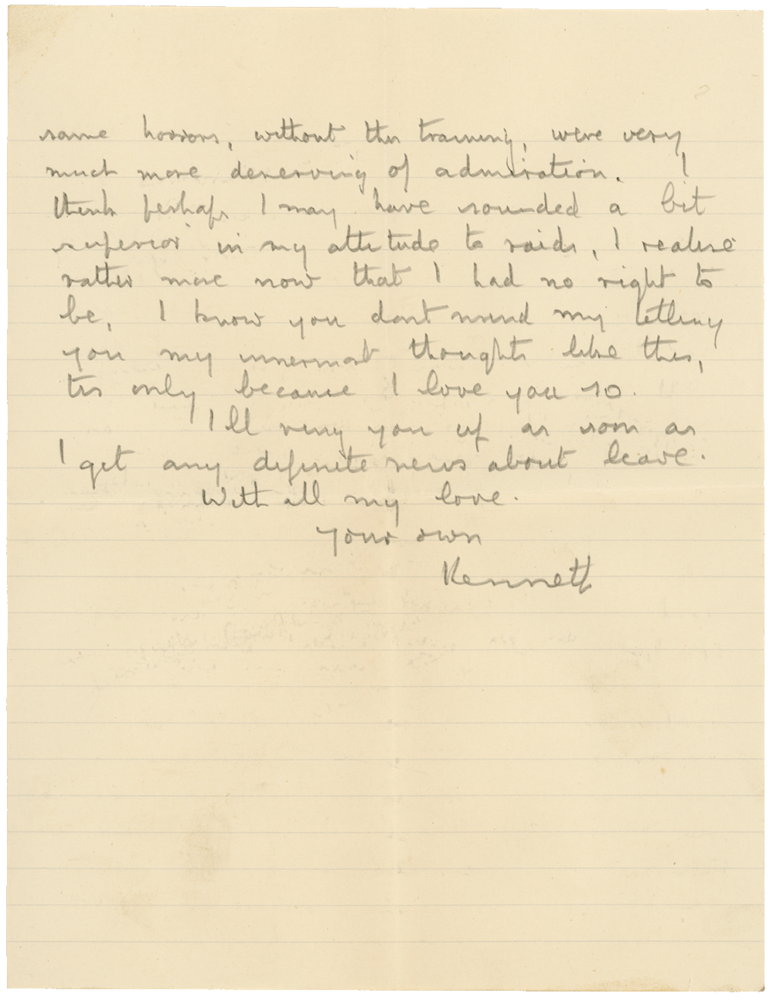 same horrors, without this training, were very
much more deserving of admiration. I
think perhaps I may have sounded a bit
superior in my attitude to raids, I realise
rather more now that I had no right to
be, I know you dont mind my telling
you my innermost thoughts like this,
tis only because I love you so.
I'll ring you up as soon as
I get any definite news about leave.
With all my love.
Your own
Kenneth